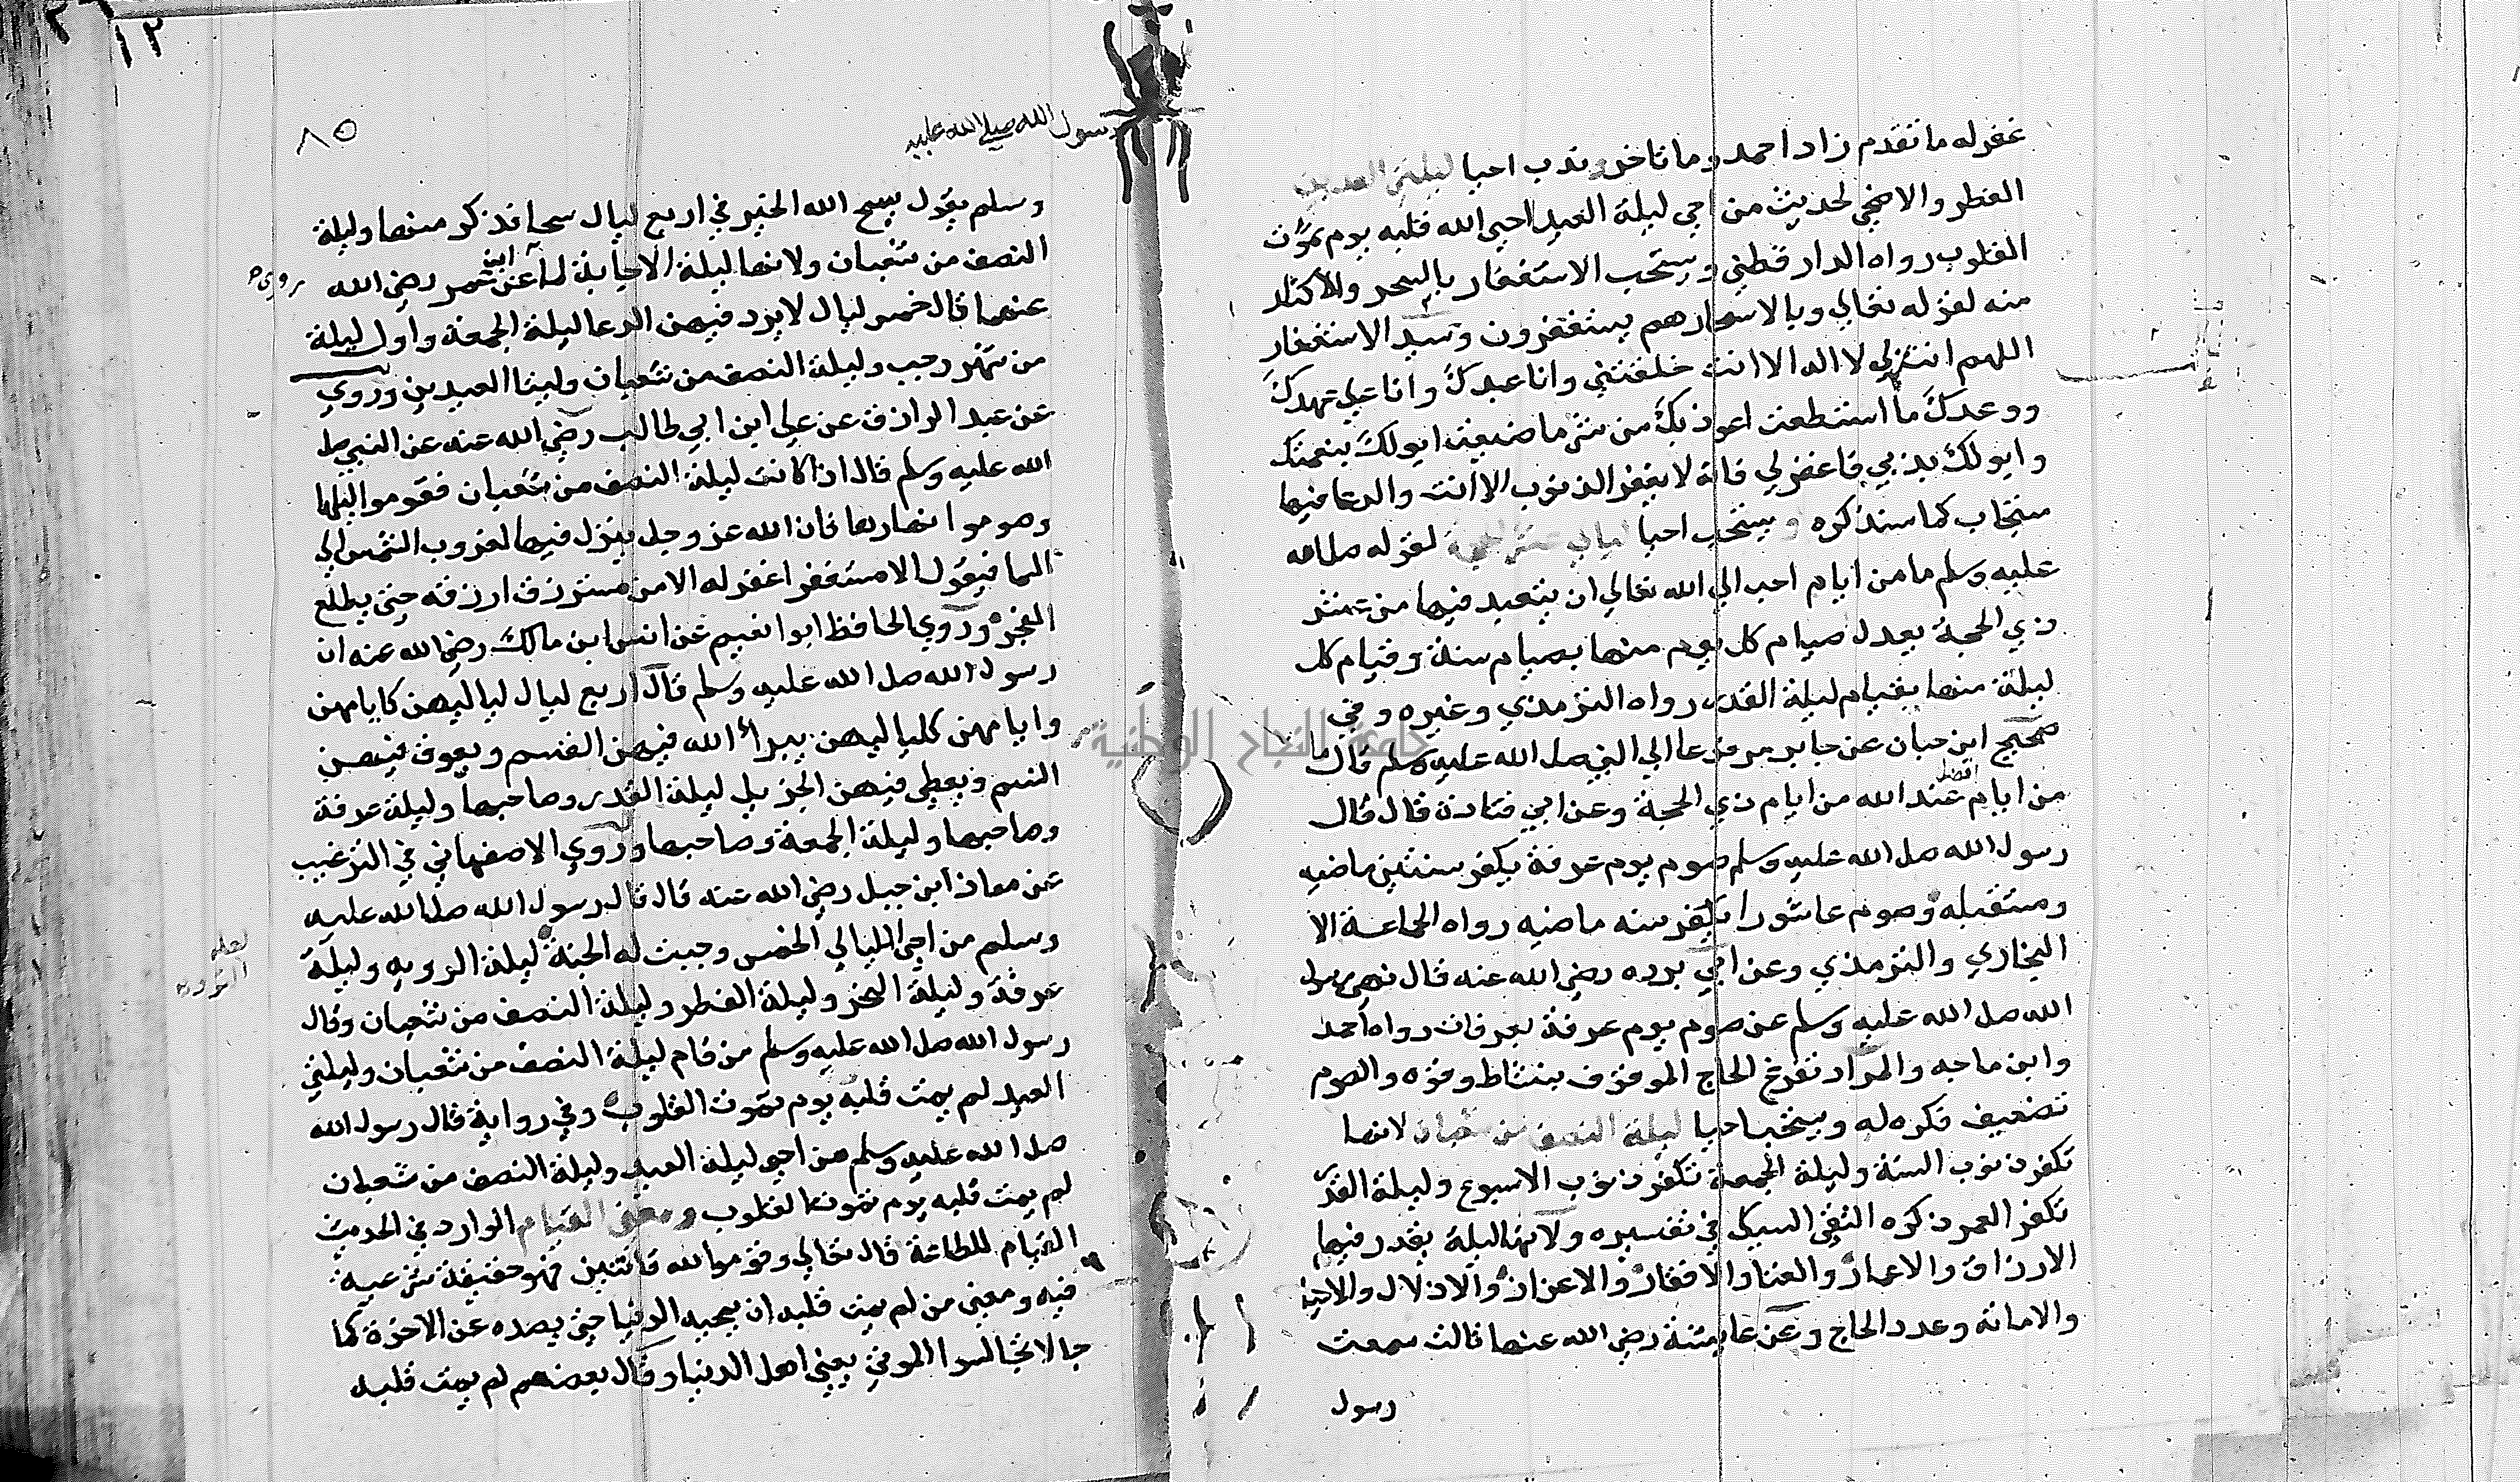 غفر له ما تقدم زاد احمد وما تاخر وندب احيا ليلتي العيدين
الفطر والاضحي لحديث من احي ليلة العيد احيي الله قلبه يوم تموت
القلوب رواه الدارقطني ويستحب الاستغفار بالسحر والاكثار
منه لقوله تعالي وبالاسحار هم يستغفرون وسيد الاستغفار
اللهم انت ربي لا اله الا انت خلقتني وانا عبدك وانا علي عهدك
ووعدك ما استطعت اعوذ بك من شر ما صنعت ابو لك بنعمتك
وابو لك بذنبي فاغفر لي فانه لا يغفر الذنوب الا انت والدعا فيها
مستجاب كما سنذكره ويستحب احيا ليالي عشر الحجة لقوله صلى الله
عليه وسلم ما من ايام احب الي الله تعالي ان يتعبد فيها من عشر
ذي الحجة يعدل صيام كل يوم منها بصيام سنة وقيام كل
ليلة منها بقيام ليلة القدر رواه الترمذي وغيره وفي
صحيح ابن حبان عن جابر مرفوعا الي النبي صلى الله عليه وسلم قال ما
من ايام افضل عند الله من ايام ذي الحجة وعن ابي قتادة قال قال
رسول الله صلى الله عليه وسلم صوم يوم عرفة يكفر سنتين ماضيه
ومستقبله وصوم عاشورا يكفر سنه ماضيه رواه الجماعة الا
البخاري والترمذي وعن ابي برده رضي الله عنه قال نهى رسول
الله صلى الله عليه وسلم عن صوم يوم عرفة بعرفات رواه احمد
وابن ماجه والمراد تفرغ الحاج الموقوف بنشاط وقوه والصوم
تضعيف فكره له ويستحب احيا ليلة النصف من شعبان لانها
تكفر ذنوب السنة وليلة الجمعة تكفر ذنوب الاسبوع وليلة القدر
تكفر العمر ذكره التقي السبكي في تفسيره ولانها ليلة يقدر فيها
الارزاق والاعمار والغنا والافقار والاعزاز والاذلال والاحيا
والاماته وعدد الحاج وعن عايشة رضي الله عنها قالت سمعت
رسول
٨٥
رسول الله صلى الله عليه
وسلم يقول يسح الله الخير في اربع ليال سحا فذكر منها وليلة
النصف من شعبان ولانها ليلة الاجابة لما عن ابن عمر رضي الله
روى
عنهما قال خمس ليال لا يرد فيهن الدعا ليلة الجمعة واول ليلة
من شهر رجب وليلة النصف من شعبان وليلتا العيدين وروي
عن عبد الرازق عن علي ابن ابي طالب رضي الله عنه عن النبي صلى
الله عليه وسلم قال اذا كانت ليلة النصف من شعبان فقوموا ليلها
وصوموا نهارها فان الله عز وجل ينزل فيها لغروب الشمس الي
السما فيقول الا مستغفر اغفر له الا من مسترزق ارزقه حتي يطلع
الفجر وروي الحافظ ابوا نعيم عن انس ابن مالك رضي الله عنه ان
رسول الله صلى الله عليه وسلم قال اربع ليال لياليهن كايامهن
وايامهن كلياليهن يبرأ الله فيهن القسم ويعوق فيهن
النسم ويعطي فيهن الجزيل ليلة القدر وصاحبها وليلة عرفة
وصاحبها وليلة الجمعة وصاحبها وروي الاصفهاني في الترغيب
عن معاذ ابن جبل رضي الله عنه قال قال رسول الله صلى الله عليه
وسلم من احيى الليالي الخمس وجبت له الجنة ليلة الرويه وليلة
لعله
الترويه
عرفة وليلة النحر وليلة الفطر وليلة النصف من شعبان وقال
رسول الله صلى الله عليه وسلم من قام ليلة النصف من شعبان وليلتي
العيد لم يمت قلبه يوم تموت القلوب وفي رواية قال رسول الله
صلى الله عليه وسلم من احيى ليلة العيد وليلة النصف من شعبان
لم يمت قلبه يوم تموت القلوب ومعنى القيام الوارد في الحديث
القيام للطاعة قال تعالي وقوموا لله قانتين فهو حقيقة شرعية
فيه ومعنى من لم يمت قلبه ان يحبه الدنيا حتي يصده عن الاخرة كما
جا لا تجالسوا الموتى يعني اهل الدنيا وقال بعضهم لم يمت قلبه
جامعة النجاح الوطنية